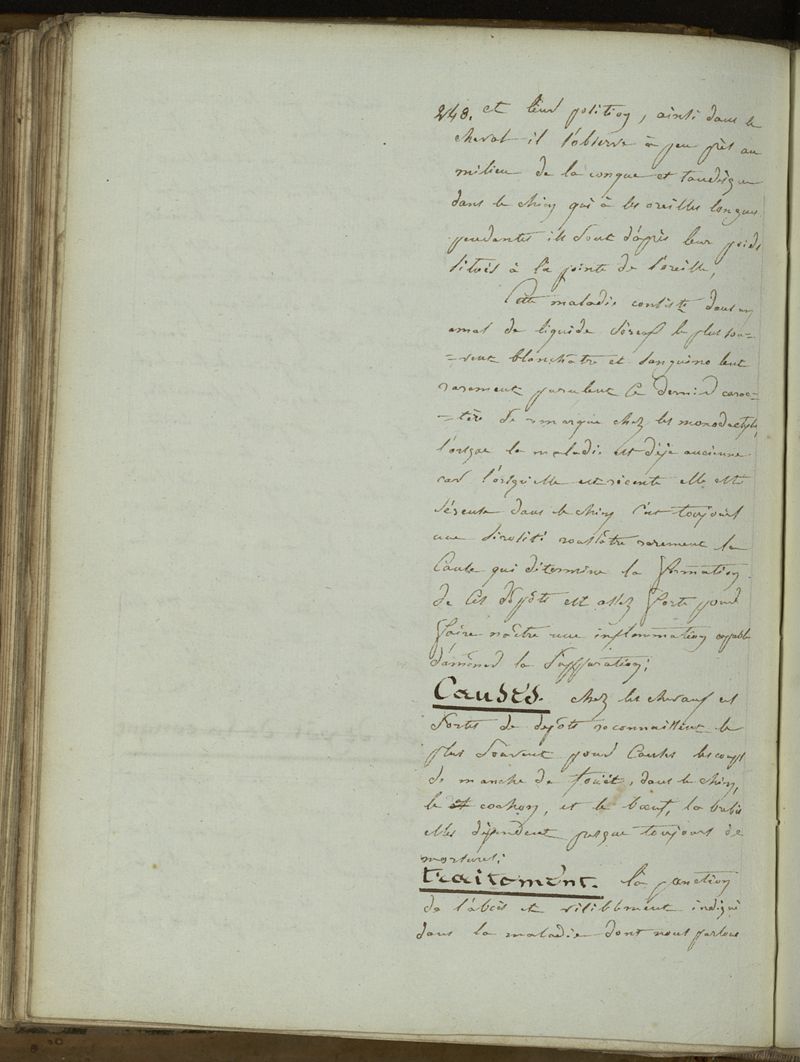 248. et leur position, ainsi dans le
cheval il s'observe à peu près au
milieu de la conque et tandisque
dans le chien qui à les oreilles longues
pendantes ils sont d'après leur poids
situés à la pointe de l'oreille,
Cette maladie consiste dans un
amas de liquide séreux le plus sou=
=vent blanchatre et sanguinolent
rarement purulent ce dernier carac=
=tère se remarque chez les monodactyles,
lorsque la maladie est déjà ancienne
car lorsqu'elle est récente elle est
séreuse dans le chien c'est toujours
une sérosité roussâtre rarement la
cause qui détermine la formation
de ces dépôts est assez forte pour
faire naître une inflammation capable
d'amener la suppuration;
Causes. chez les chevaux ces
sortes de depôts reconnaissent le
plus souvent pour causes les coups
de manche de fouet, dans le chien,
le cochon, et le bœuf, la brebis
elles dépendent presque toujours de
morsures;
traitement. la ponction
de l'abcès est visiblement indiqué
dans la maladie dont nous parlons